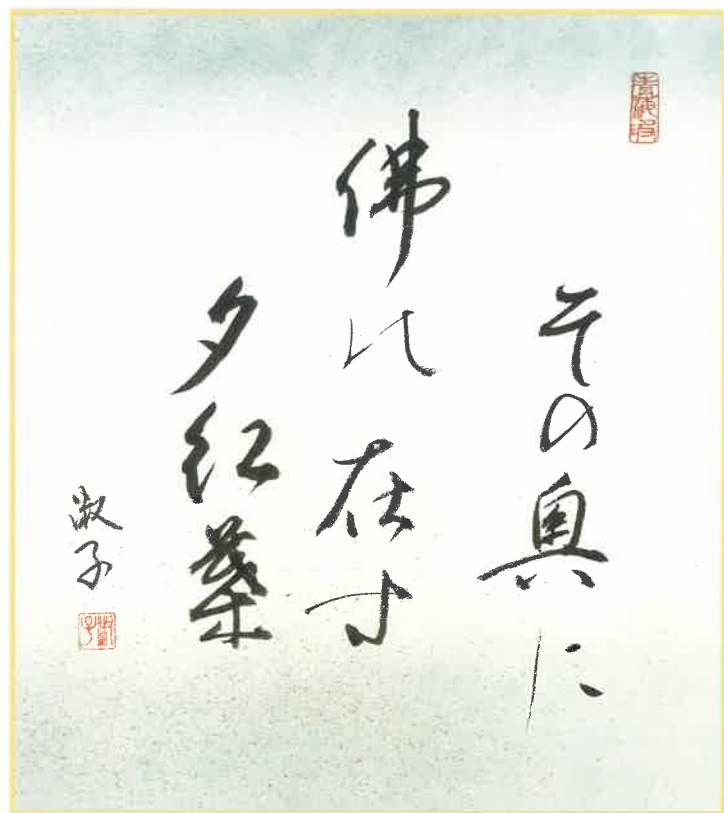 その奥に
佛の在す
夕紅葉
淑子